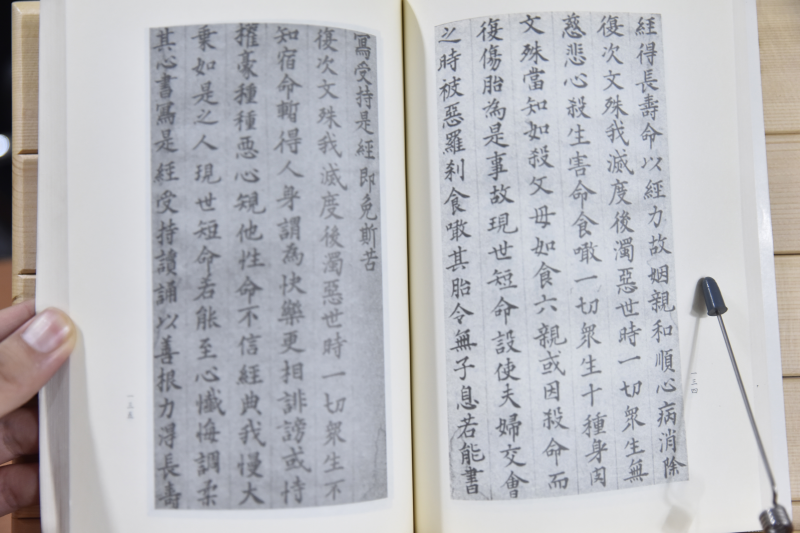 經得長壽命以經力故姻親和順心病消除
復次文殊我滅度後濁惡世時一切衆生無
慈悲心殺生害命食噉一切衆生十種身肉
文殊當知如殺父母如食六親或因殺命而
復傷胎為是事故現世短命設使夫婦交會
之時被惡羅刹食噉其胎令無子息若能書
一三四
寫受持是經即免斯苦
復次文殊我滅度後濁惡世時一切衆生不
知宿命暫得人身謂為快樂更相誹謗或恃
擢豪種種惡心規他性命不信經典我慢大
乗如是之人現世短命若能至心懺悔調柔
其心書寫是經受持讀誦以善根力得長壽
一三五